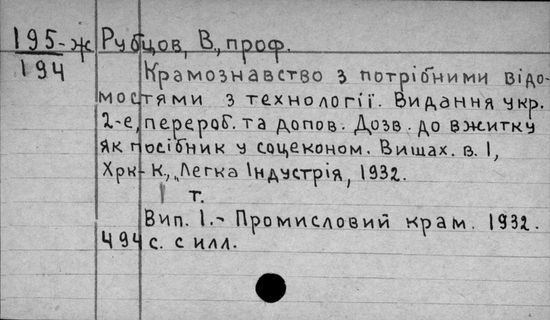 195-ж Рубцов, В., проф.
194
Крамознавство з потрібними відо-
мостями з технології. Видання укр.
2-е, перероб. та допов. Дозв. до вжитку
як посібник у соцеконом. Вишах. в. 1,
Хрк-К., „Легка Індустрія, 1932.
1 т.
Вип. 1.- Промисловий крам. 1932.
494 с. с илл.